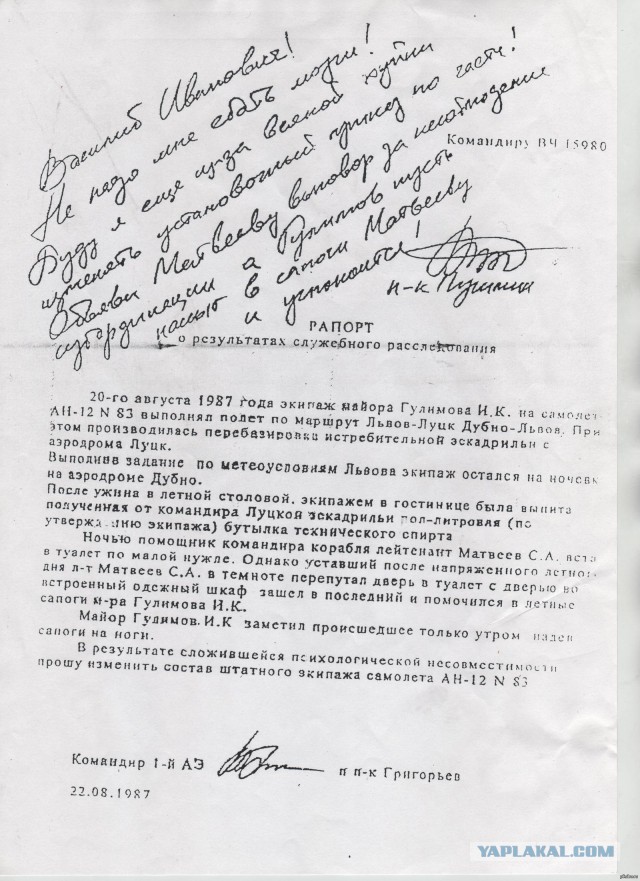 Василий Иванович!
Не надо мне ебать мозги!
Буду я ещё из-за всякой хуйни
изменять установочный приказ по части!
Объяви Матвееву выговор за несоблюдение
субординации а Гулимов пусть
нассыт в сапоги Матвееву
и успокоится!
п-к
Командиру ВЧ 15980
РАПОРТ
о результатах служебного расследования
20-го августа 1987 года экипаж майора Гулимова И.К. на самолет
АН-12 N 83 выполнял полет по маршрут Львов-Луцк Дубно-Львов. При
этом производилась перебазировка истребительной эскадрильи с
аэродрома Луцк.
Выполнив задание по метеоусловиям Львова экипаж остался на ночевк
на аэродроме Дубно.
После ужина в летной столовой, экипажем в гостинице была выпита
полученная от командира Луцкой эскадрильи пол-литровая (по
утвержд.нию экипажа) бутылка технического спирта
Ночью помощник командира корабля лейтенант Матвеев С.А. вста
в туалет по малой нужде. Однако уставший после напряженного летно-
дня л-т Матвеев С.А. в темноте перепутал дверь в туалет с дверью во
встроенный одежный шкаф зашел в последний и помочился в летные
сапоги м-ра Гулимова И.К.
Майор Гулимов.И.К заметил происшедшее только утром надев
сапоги на ноги.
В результате сложившейся психологической несовместимости
прошу изменить состав штатного экипажа самолета АН-12 N 83
Командир 1-й АЭ п п-к Григорьев
22.08.1987
YAPLAKAL.COM